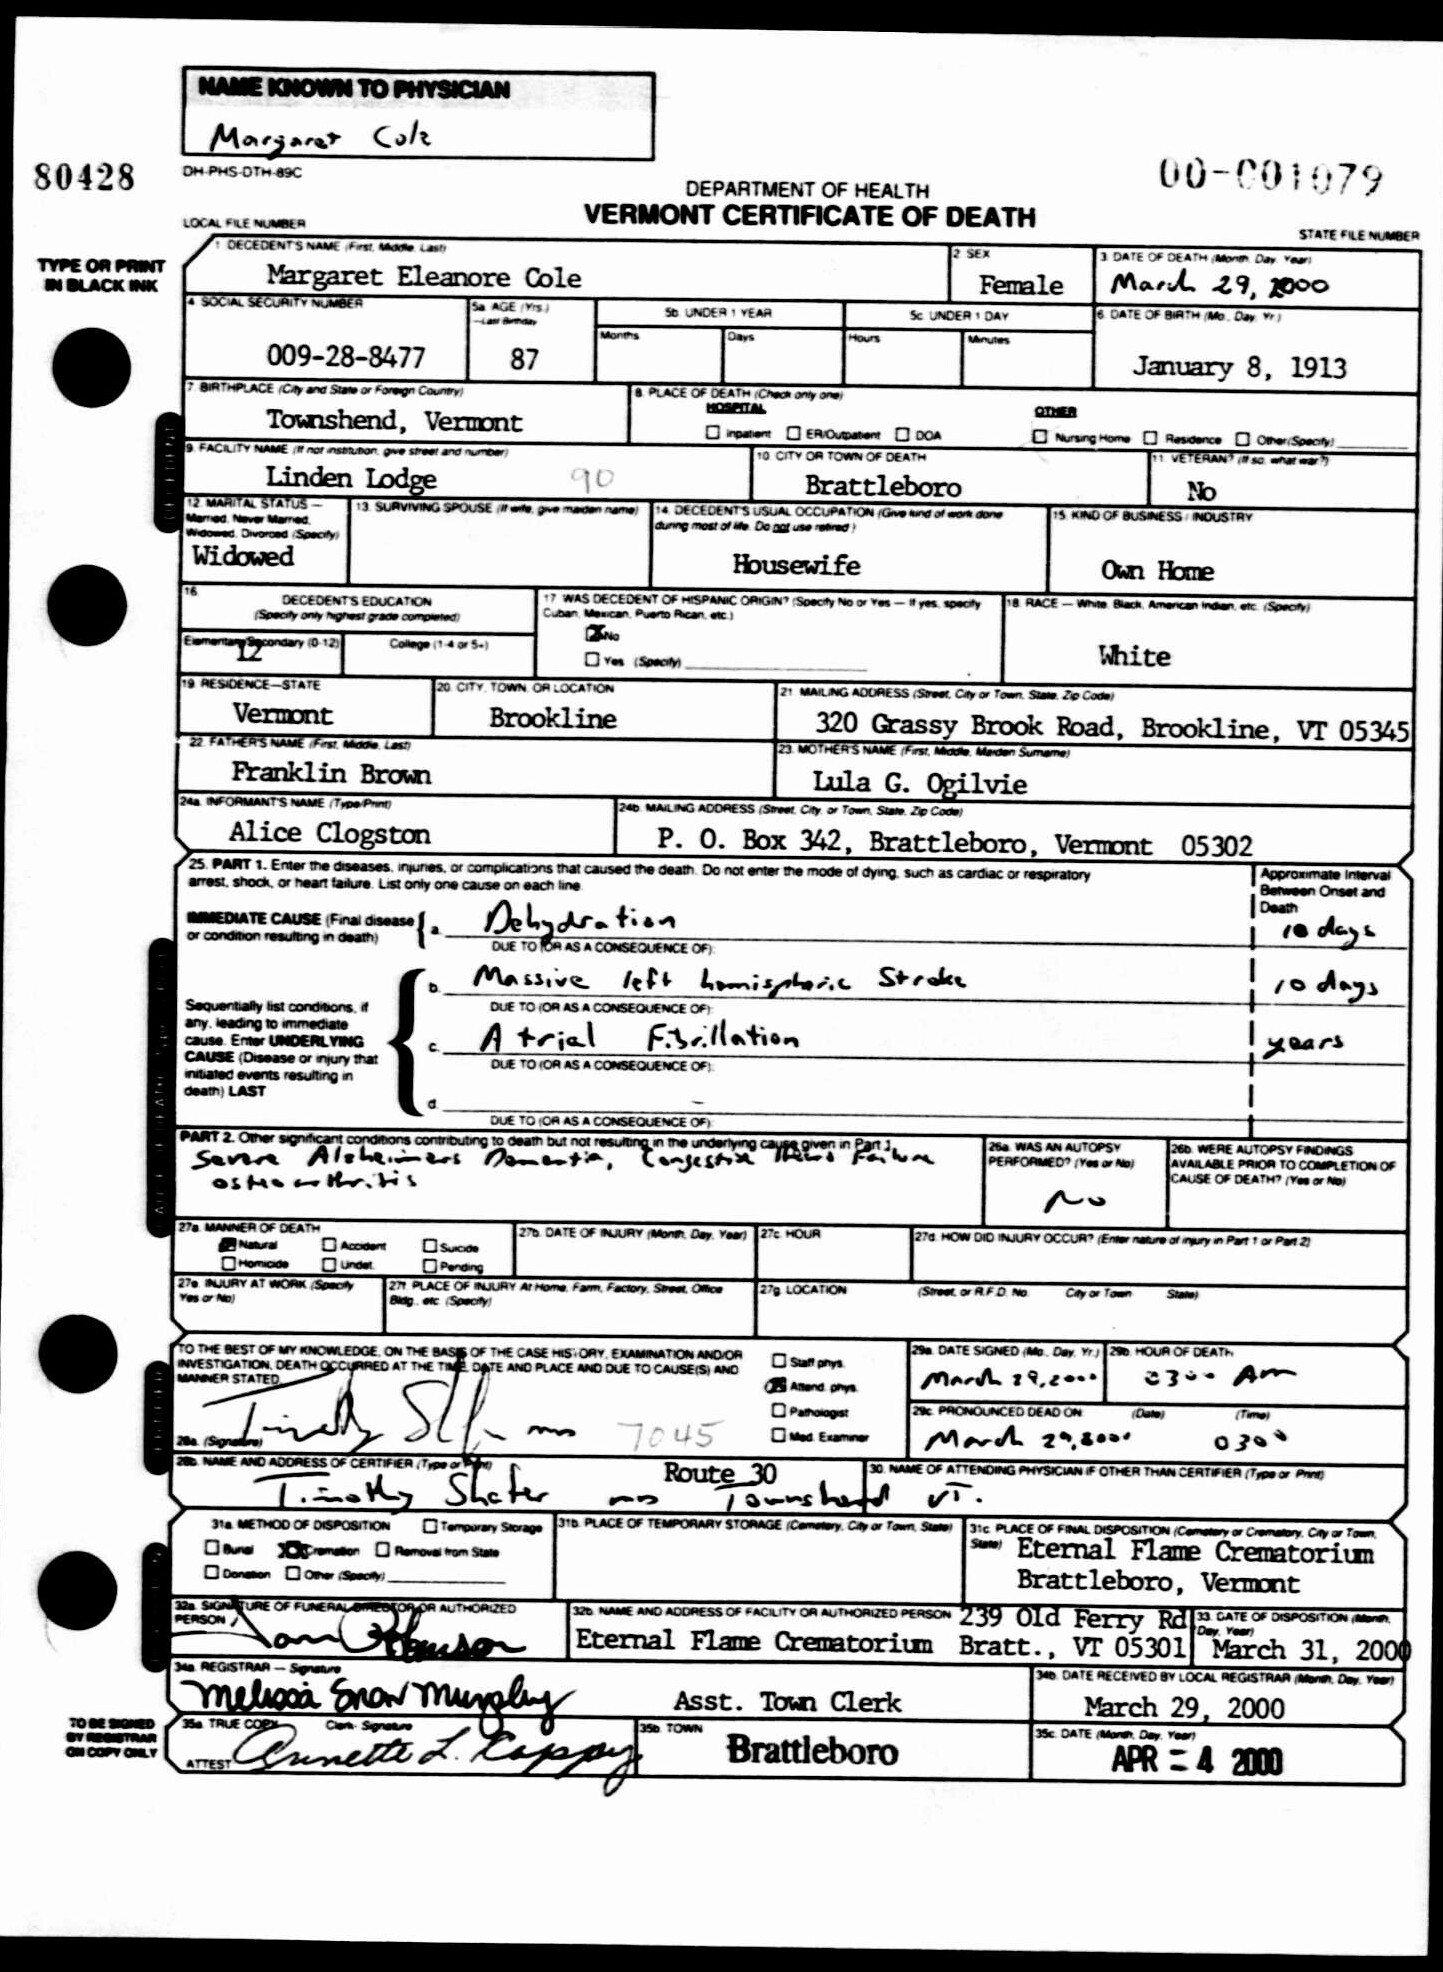 NAME KNOWN TO PHYSICIAN
Margaret Cole
80428
DH-PHS-DTH-89C
00-001079
DEPARTMENT OF HEALTH
VERMONT CERTIFICATE OF DEATH
LOCAL FILE NUMBER
STATE FILE NUMBER
TYPE OR PRINT
IN BLACK INK
1 DECEDENT'S NAME (First, Middle, Last)
Margaret Eleanore Cole
2 SEX
Female
3. DATE OF DEATH (Month, Day, Year)
March 29, 2000
4 SOCIAL SECURITY NUMBER
009-28-8477
5a. AGE (Yrs.)
—Last Birthday
87
5b. UNDER 1 YEAR
Months
Days
5c. UNDER 1 DAY
Hours
Minutes
6. DATE OF BIRTH (Mo., Day, Yr.)
January 8, 1913
7. BIRTHPLACE (City and State or Foreign Country)
Townshend, Vermont
8. PLACE OF DEATH (Check only one)
HOSPITAL
Inpatient ER/Outpatient DOA
OTHER
Nursing Home Residence Other (Specify)
9. FACILITY NAME (If not institution, give street and number)
Linden Lodge 90
10 CITY OR TOWN OF DEATH
Brattleboro
11. VETERAN? (If so, what war?)
No
12. MARITAL STATUS —
Married, Never Married,
Widowed, Divorced (Specify)
Widowed
13. SURVIVING SPOUSE (If wife, give maiden name)
14. DECEDENT'S USUAL OCCUPATION (Give kind of work done
during most of life. Do not use retired.)
Housewife
15. KIND OF BUSINESS / INDUSTRY
Own Home
16
DECEDENT'S EDUCATION
(Specify only highest grade completed)
Elementary/Secondary (0-12)
12
College (1-4 or 5+)
17 WAS DECEDENT OF HISPANIC ORIGIN? (Specify No or Yes — If yes, specify
Cuban, Mexican, Puerto Rican, etc.)
No
Yes (Specify)
18. RACE — White, Black, American Indian, etc. (Specify)
White
19. RESIDENCE—STATE
Vermont
20. CITY, TOWN, OR LOCATION
Brookline
21. MAILING ADDRESS (Street, City or Town, State, Zip Code)
320 Grassy Brook Road, Brookline, VT 05345
22. FATHER'S NAME (First, Middle, Last)
Franklin Brown
23. MOTHER'S NAME (First, Middle, Maiden Surname)
Lula G. Ogilvie
24a. INFORMANT'S NAME (Type/Print)
Alice Clogston
24b. MAILING ADDRESS (Street, City, or Town, State, Zip Code)
P. O. Box 342, Brattleboro, Vermont 05302
25. PART 1. Enter the diseases, injuries, or complications that caused the death. Do not enter the mode of dying, such as cardiac or respiratory
arrest, shock, or heart failure. List only one cause on each line.
Approximate Interval
Between Onset and
Death
IMMEDIATE CAUSE (Final disease
or condition resulting in death)
a. Dehydration 10 days
DUE TO (OR AS A CONSEQUENCE OF):
b. Massive left hemispheric Stroke 10 days
DUE TO (OR AS A CONSEQUENCE OF):
c. Atrial Fibrillation years
DUE TO (OR AS A CONSEQUENCE OF):
d.
DUE TO (OR AS A CONSEQUENCE OF):
Sequentially list conditions, if
any, leading to immediate
cause. Enter UNDERLYING
CAUSE (Disease or injury that
initiated events resulting in
death) LAST
PART 2. Other significant conditions contributing to death but not resulting in the underlying cause given in Part 1.
Severe Alzheimers Dementia, Congestive Heart Failure
osteoarthritis
26a. WAS AN AUTOPSY
PERFORMED? (Yes or No)
No
26b. WERE AUTOPSY FINDINGS
AVAILABLE PRIOR TO COMPLETION OF
CAUSE OF DEATH? (Yes or No)
27a. MANNER OF DEATH
Natural Accident Suicide
Homicide Undet. Pending
27b. DATE OF INJURY (Month, Day, Year)
27c. HOUR
27d. HOW DID INJURY OCCUR? (Enter nature of injury in Part 1 or Part 2)
27e. INJURY AT WORK (Specify
Yes or No)
27f. PLACE OF INJURY At Home, Farm, Factory, Street, Office
Bldg., etc. (Specify)
27g. LOCATION (Street, or R.F.D. No. City or Town State)
TO THE BEST OF MY KNOWLEDGE, ON THE BASIS OF THE CASE HISTORY, EXAMINATION AND/OR
INVESTIGATION, DEATH OCCURRED AT THE TIME, DATE AND PLACE AND DUE TO CAUSE(S) AND
MANNER STATED.
28a. (Signature)
7045
Staff phys.
Attend. phys.
Pathologist
Med. Examiner
29a. DATE SIGNED (Mo., Day, Yr.)
March 29, 2000
29b. HOUR OF DEATH
0300 AM
29c. PRONOUNCED DEAD ON: (Date) (Time)
March 29, 2000 0300
28b. NAME AND ADDRESS OF CERTIFIER (Type or Print)
Route 30
Timothy Shafer MD Townshend VT.
30. NAME OF ATTENDING PHYSICIAN IF OTHER THAN CERTIFIER (Type or Print)
31a. METHOD OF DISPOSITION Temporary Storage
Burial Cremation Removal from State
Donation Other (Specify)
31b. PLACE OF TEMPORARY STORAGE (Cemetery, City or Town, State)
31c. PLACE OF FINAL DISPOSITION (Cemetery or Crematory, City or Town,
State)
Eternal Flame Crematorium
Brattleboro, Vermont
32a. SIGNATURE OF FUNERAL DIRECTOR OR AUTHORIZED
PERSON
32b. NAME AND ADDRESS OF FACILITY OR AUTHORIZED PERSON
239 Old Ferry Rd
Eternal Flame Crematorium Bratt., VT 05301
33. DATE OF DISPOSITION (Month,
Day, Year)
March 31, 2000
34a. REGISTRAR — Signature
Melissa Snow Murphy
Asst. Town Clerk
34b. DATE RECEIVED BY LOCAL REGISTRAR (Month, Day, Year)
March 29, 2000
TO BE SIGNED
BY REGISTRAR
ON COPY ONLY
35a. TRUE COPY Clerk - Signature
ATTEST
Annette L. Cappy
35b. TOWN
Brattleboro
35c. DATE (Month, Day, Year)
APR - 4 2000